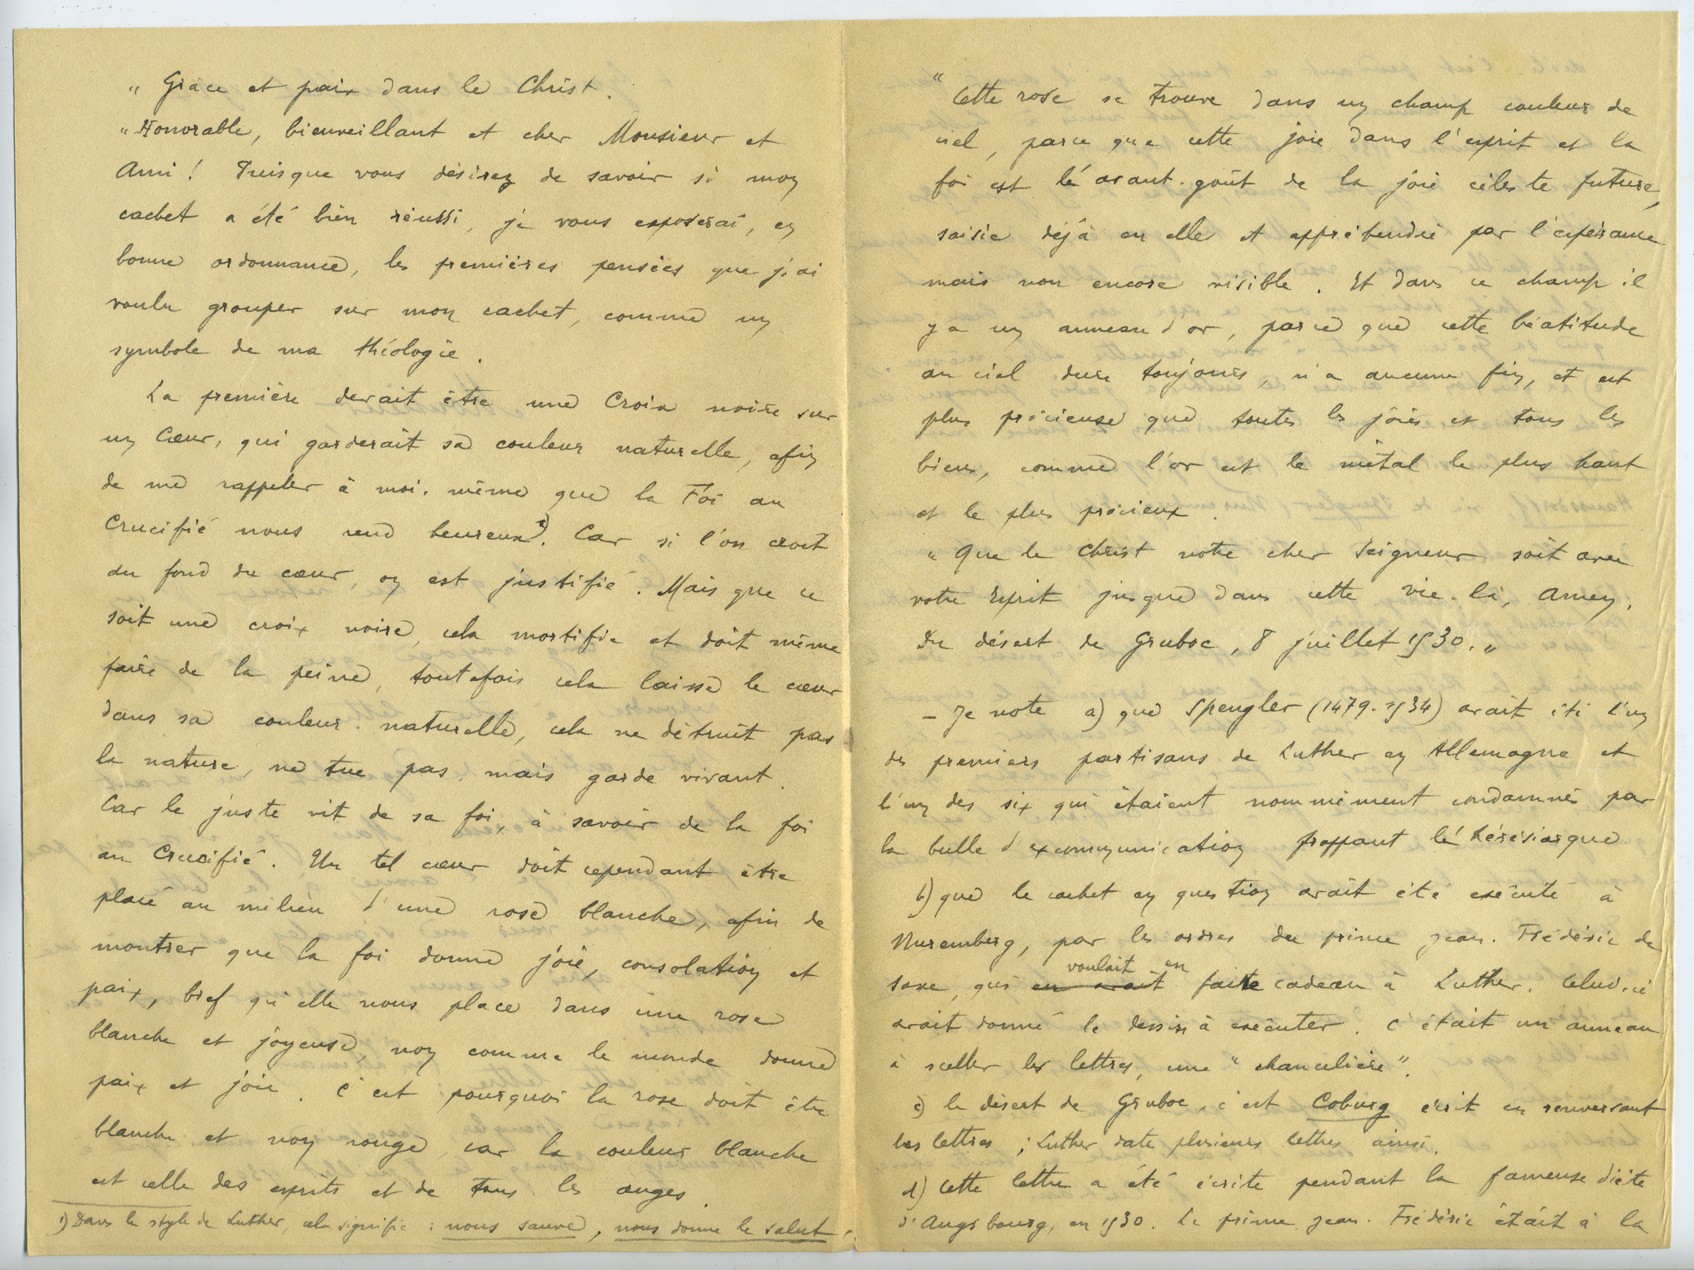 „ Grâce et paix dans le Christ.
„ Honorable, bienveillant et cher Monsieur et
Ami ! Puisque vous désirez de savoir si mon
cachet a été bien réussi, je vous exposerai, en
bonne ordonnance, les premières pensées que j'ai
voulu grouper sur mon cachet, comme un
symbole de ma théologie.
La première devait être une Croix noire sur
un Cœur, qui garderait sa couleur naturelle, afin
de me rappeler à moi-même que la Foi au
Crucifié nous rend heureux 1). Car si l'on croit
du fond du cœur, on est justifié. Mais que ce
soit une croix noire, cela mortifie et doit même
faire de la peine, toutefois cela laisse le cœur
dans sa couleur naturelle, cela ne détruit pas
la nature, ne tue pas, mais garde vivant.
Car le juste vit de sa foi, à savoir de la foi
au Crucifié. Un tel cœur doit cependant être
placé au milieu d'une rose blanche, afin de
montrer que la foi donne joie, consolation et
paix, bref qu'elle nous place dans une rose
blanche et joyeuse, non comme le monde donne
paix et joie. C'est pourquoi la rose doit être
blanche et non rouge, car la couleur blanche
est celle des esprits et de tous les anges.
1) Dans le style de Luther, cela signifie : nous sauve, nous donne le salut.
" Cette rose se trouve dans un champ couleur de
ciel, parce que cette joie dans l'esprit et la
foi est l'avant-goût de la joie céleste future,
saisie déjà en elle et appréhendée par l'espérance
mais non encore visible. Et dans ce champ il
y a un anneau d'or, parce que cette béatitude
au ciel dure toujours, n'a aucune fin, et est
plus précieuse que toutes les joies et tous les
biens, comme l'or est le métal le plus haut
et le plus précieux.
„ Que le Christ notre cher Seigneur soit avec
votre Esprit jusque dans cette vie-là, Amen.
Du désert de Gruboc, 8 juillet 1530. „
– Je note a) que Spengler (1479-1534) avait été l'un
des premiers partisans de Luther en Allemagne et
l'un des six qui étaient nommément condamnés par
la bulle d'excommunication frappant l'hérésiarque
b) que le cachet en question avait été exécuté à
Nuremberg, par les ordres du prince Jean-Frédéric de
Saxe, qui en avait voulait en faire cadeau à Luther. Celui-ci
avait donné le dessin à exécuter. C'était un anneau
à sceller les lettres, une "chancelière".
c) le désert de Gruboc, c'est Coburg écrit en renversant
les lettres ; Luther date plusieurs lettres ainsi.
d) Cette lettre a été écrite pendant la fameuse diète
d'Augsbourg, en 1530. Le prince Jean-Frédéric était à la